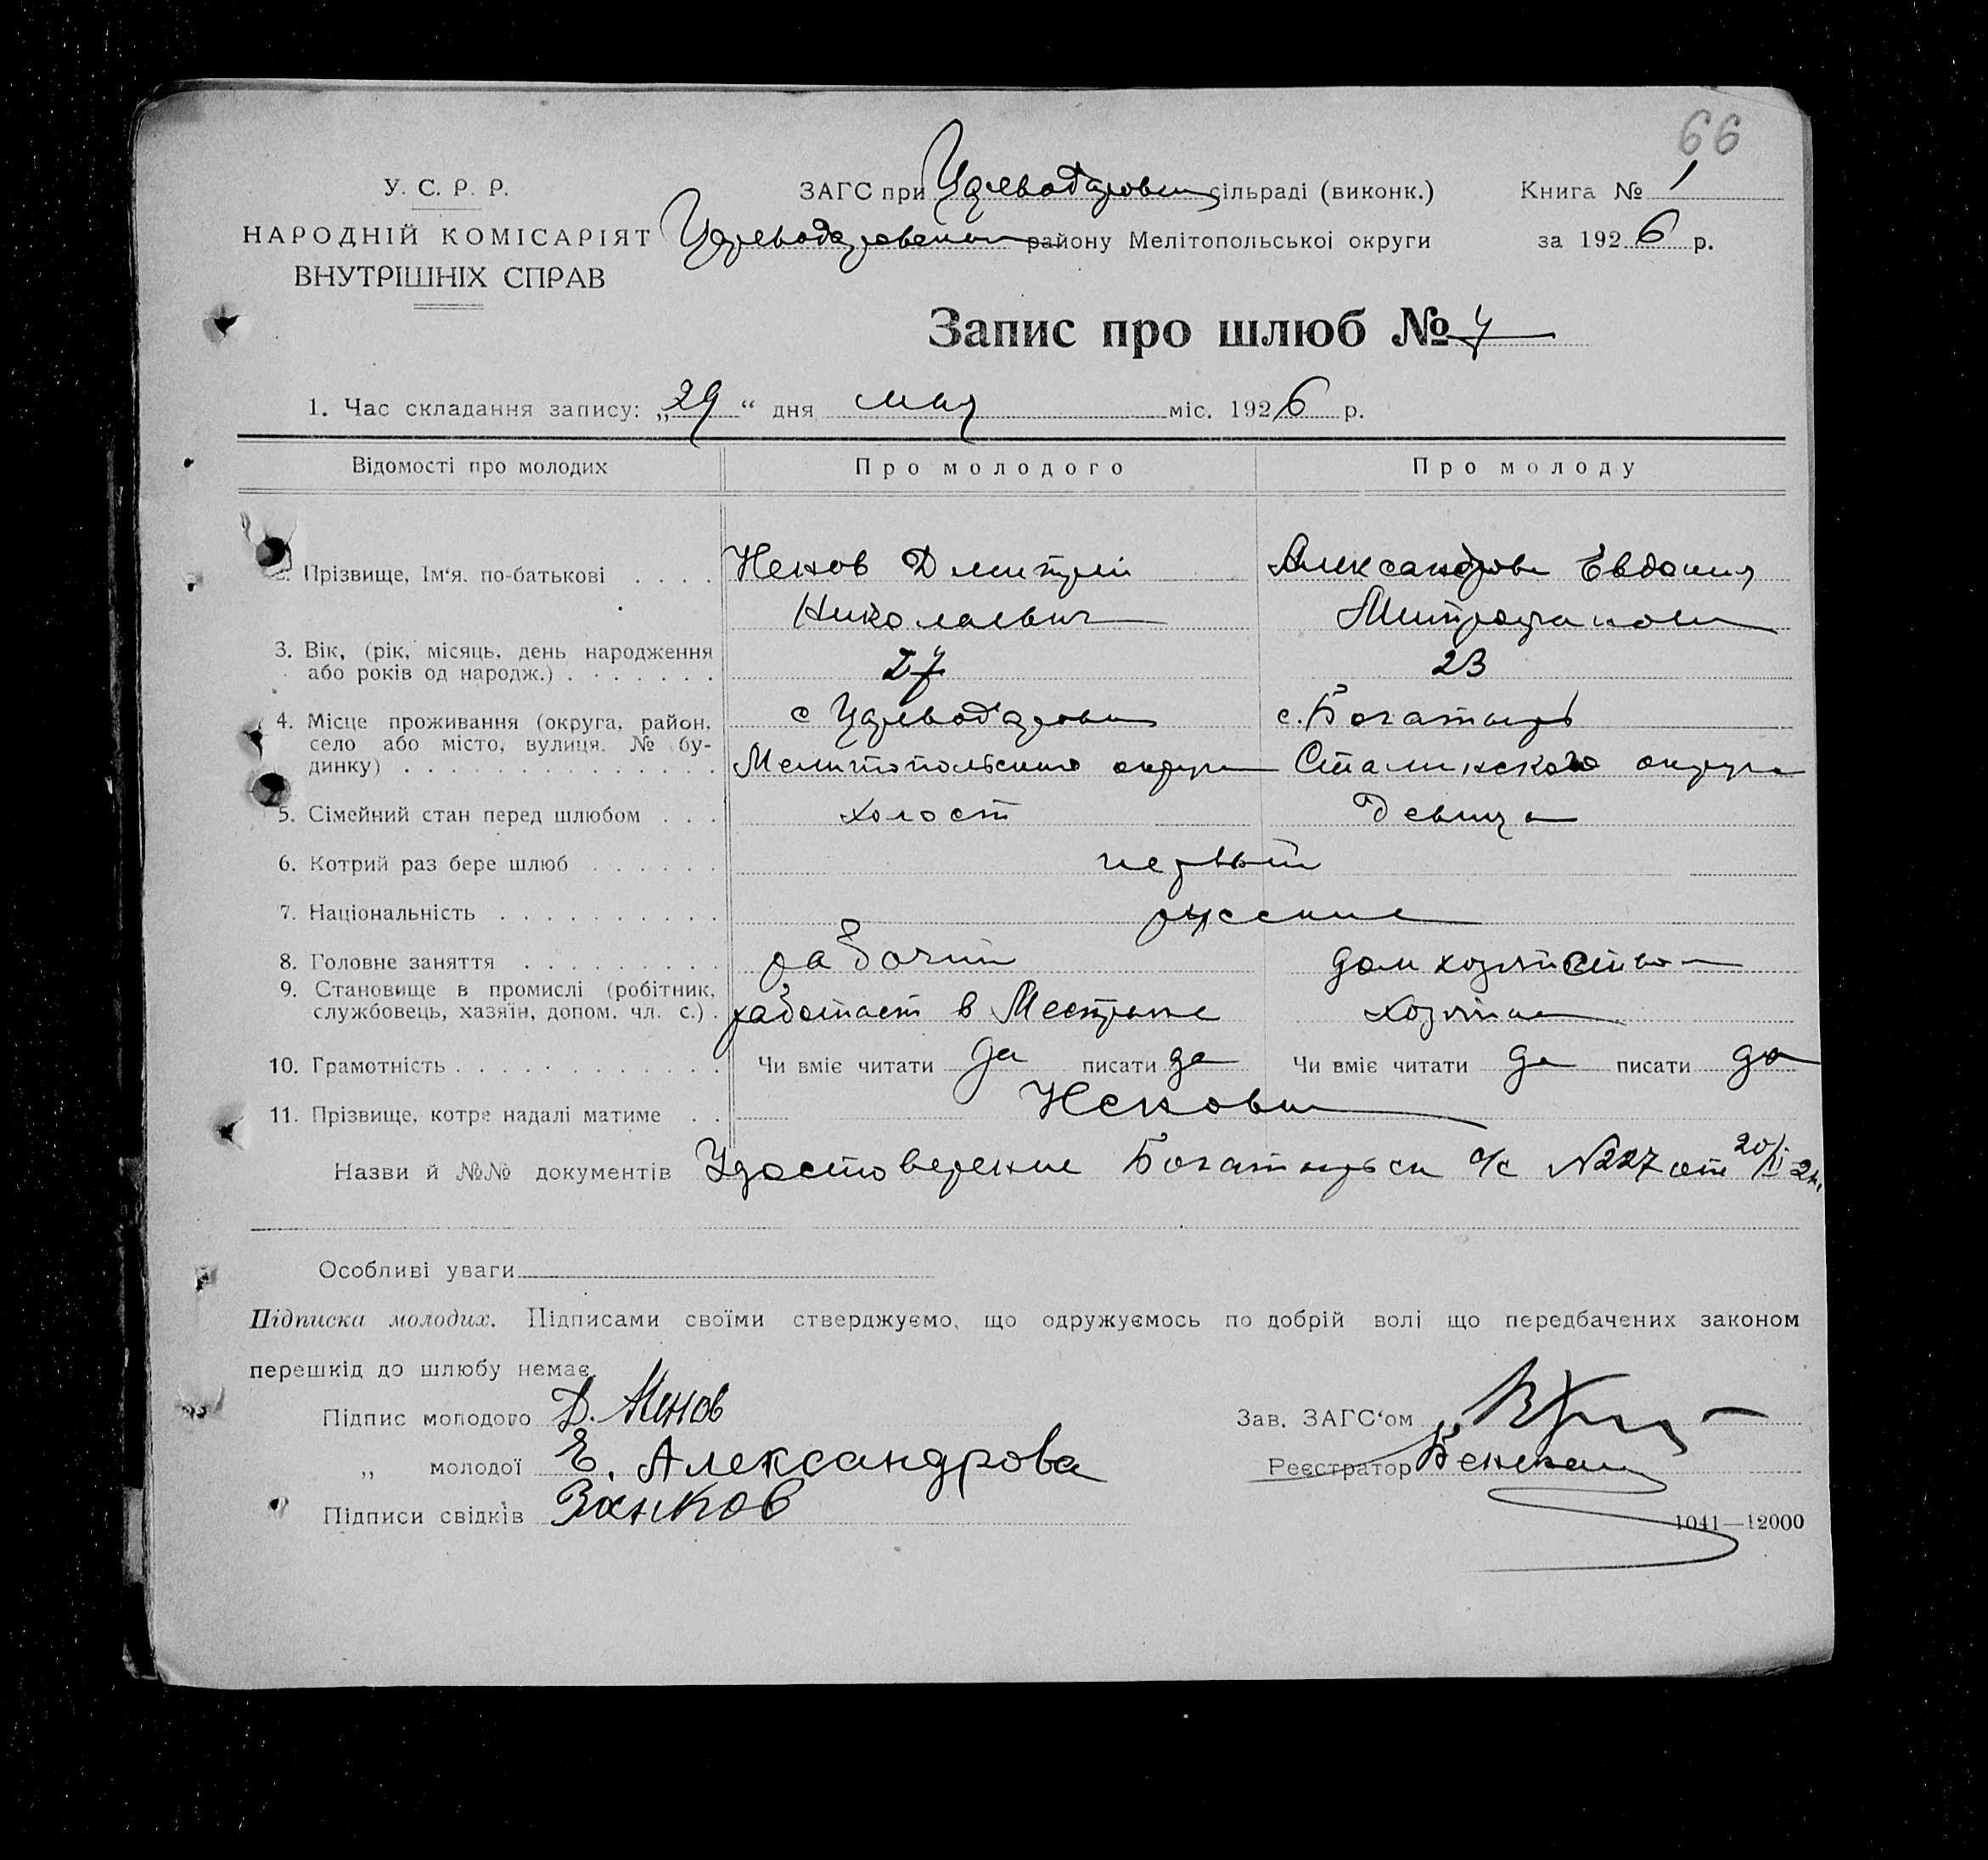 66
У. С. Р. Р.
НАРОДНІЙ КОМІСАРІЯТ
ВНУТРІШНІХ СПРАВ
ЗАГС при Цареводаровск сільраді (виконк.)
Цареводаровском району Мелітопольської округи
Книга № 1
за 1926 р.
Запис про шлюб № 7
1. Час складання запису: „29“ дня мая міс. 1926 р.
Відомості про молодих Про молодого Про молоду
2. Прізвище, Ім‘я, по-батькові Ненов Дмитрий Александрова Евдокия
Николаевич Митрофановна
3. Вік, (рік, місяць, день народження
або років од народж.) 27 23
4. Місце проживання (округа, район, с Цареводаровка с. Богатырь
село або місто, вулиця, № бу-
динку) Мелитопольского округа Сталинского округа
5. Сімейний стан перед шлюбом холост девица
6. Котрий раз бере шлюб первый
7. Національність русские
8. Головне заняття рабочий дом хозяйство
9. Становище в промислі (робітник,
службовець, хазяїн, допом. чл. с.) работает в хозяйка
10. Грамотність Чи вміє читати да писати да Чи вміє читати да писати да
11. Прізвище, котре надалі матиме Неновы
Назви й №№ документів Удостоверение Богатырьск с/с №227 от 20/
Особливі уваги
Підписка молодих. Підписами своїми стверджуємо, що одружуємось по добрій волі що передбачених законом
перешкід до шлюбу немає
Підпис молодого Д. Ненов
Зав. ЗАГС‘ом
„ молодої Е. Александрова
Реєстратор
Підписи свідків Занков
1041—12000